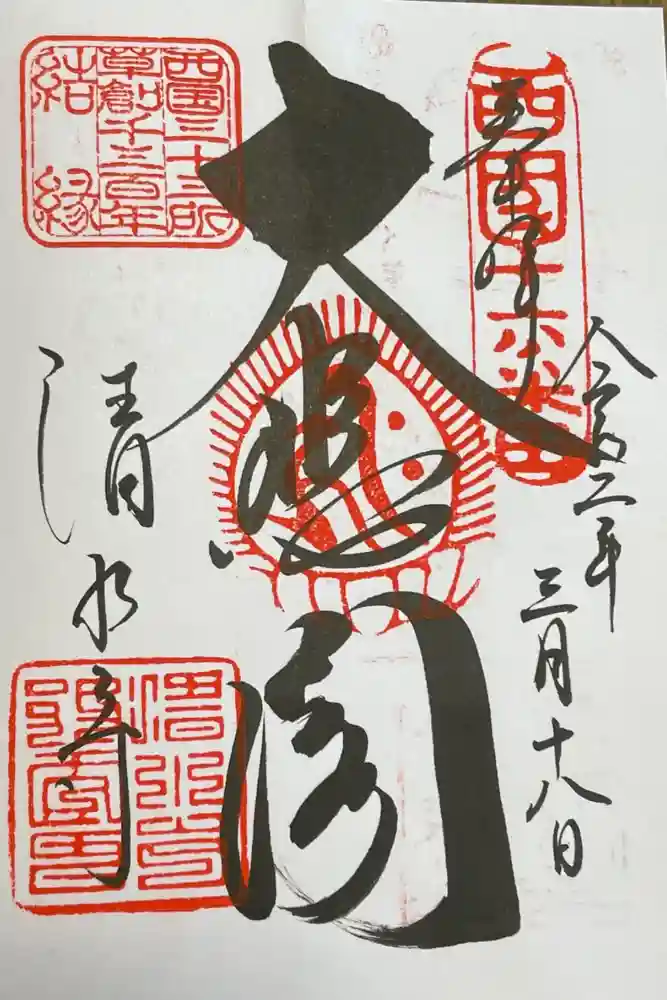 奉拝
西国十六番
令和二年
三月十八日
大悲閣
西国三十三所
草創千三百年
結縁
清水寺